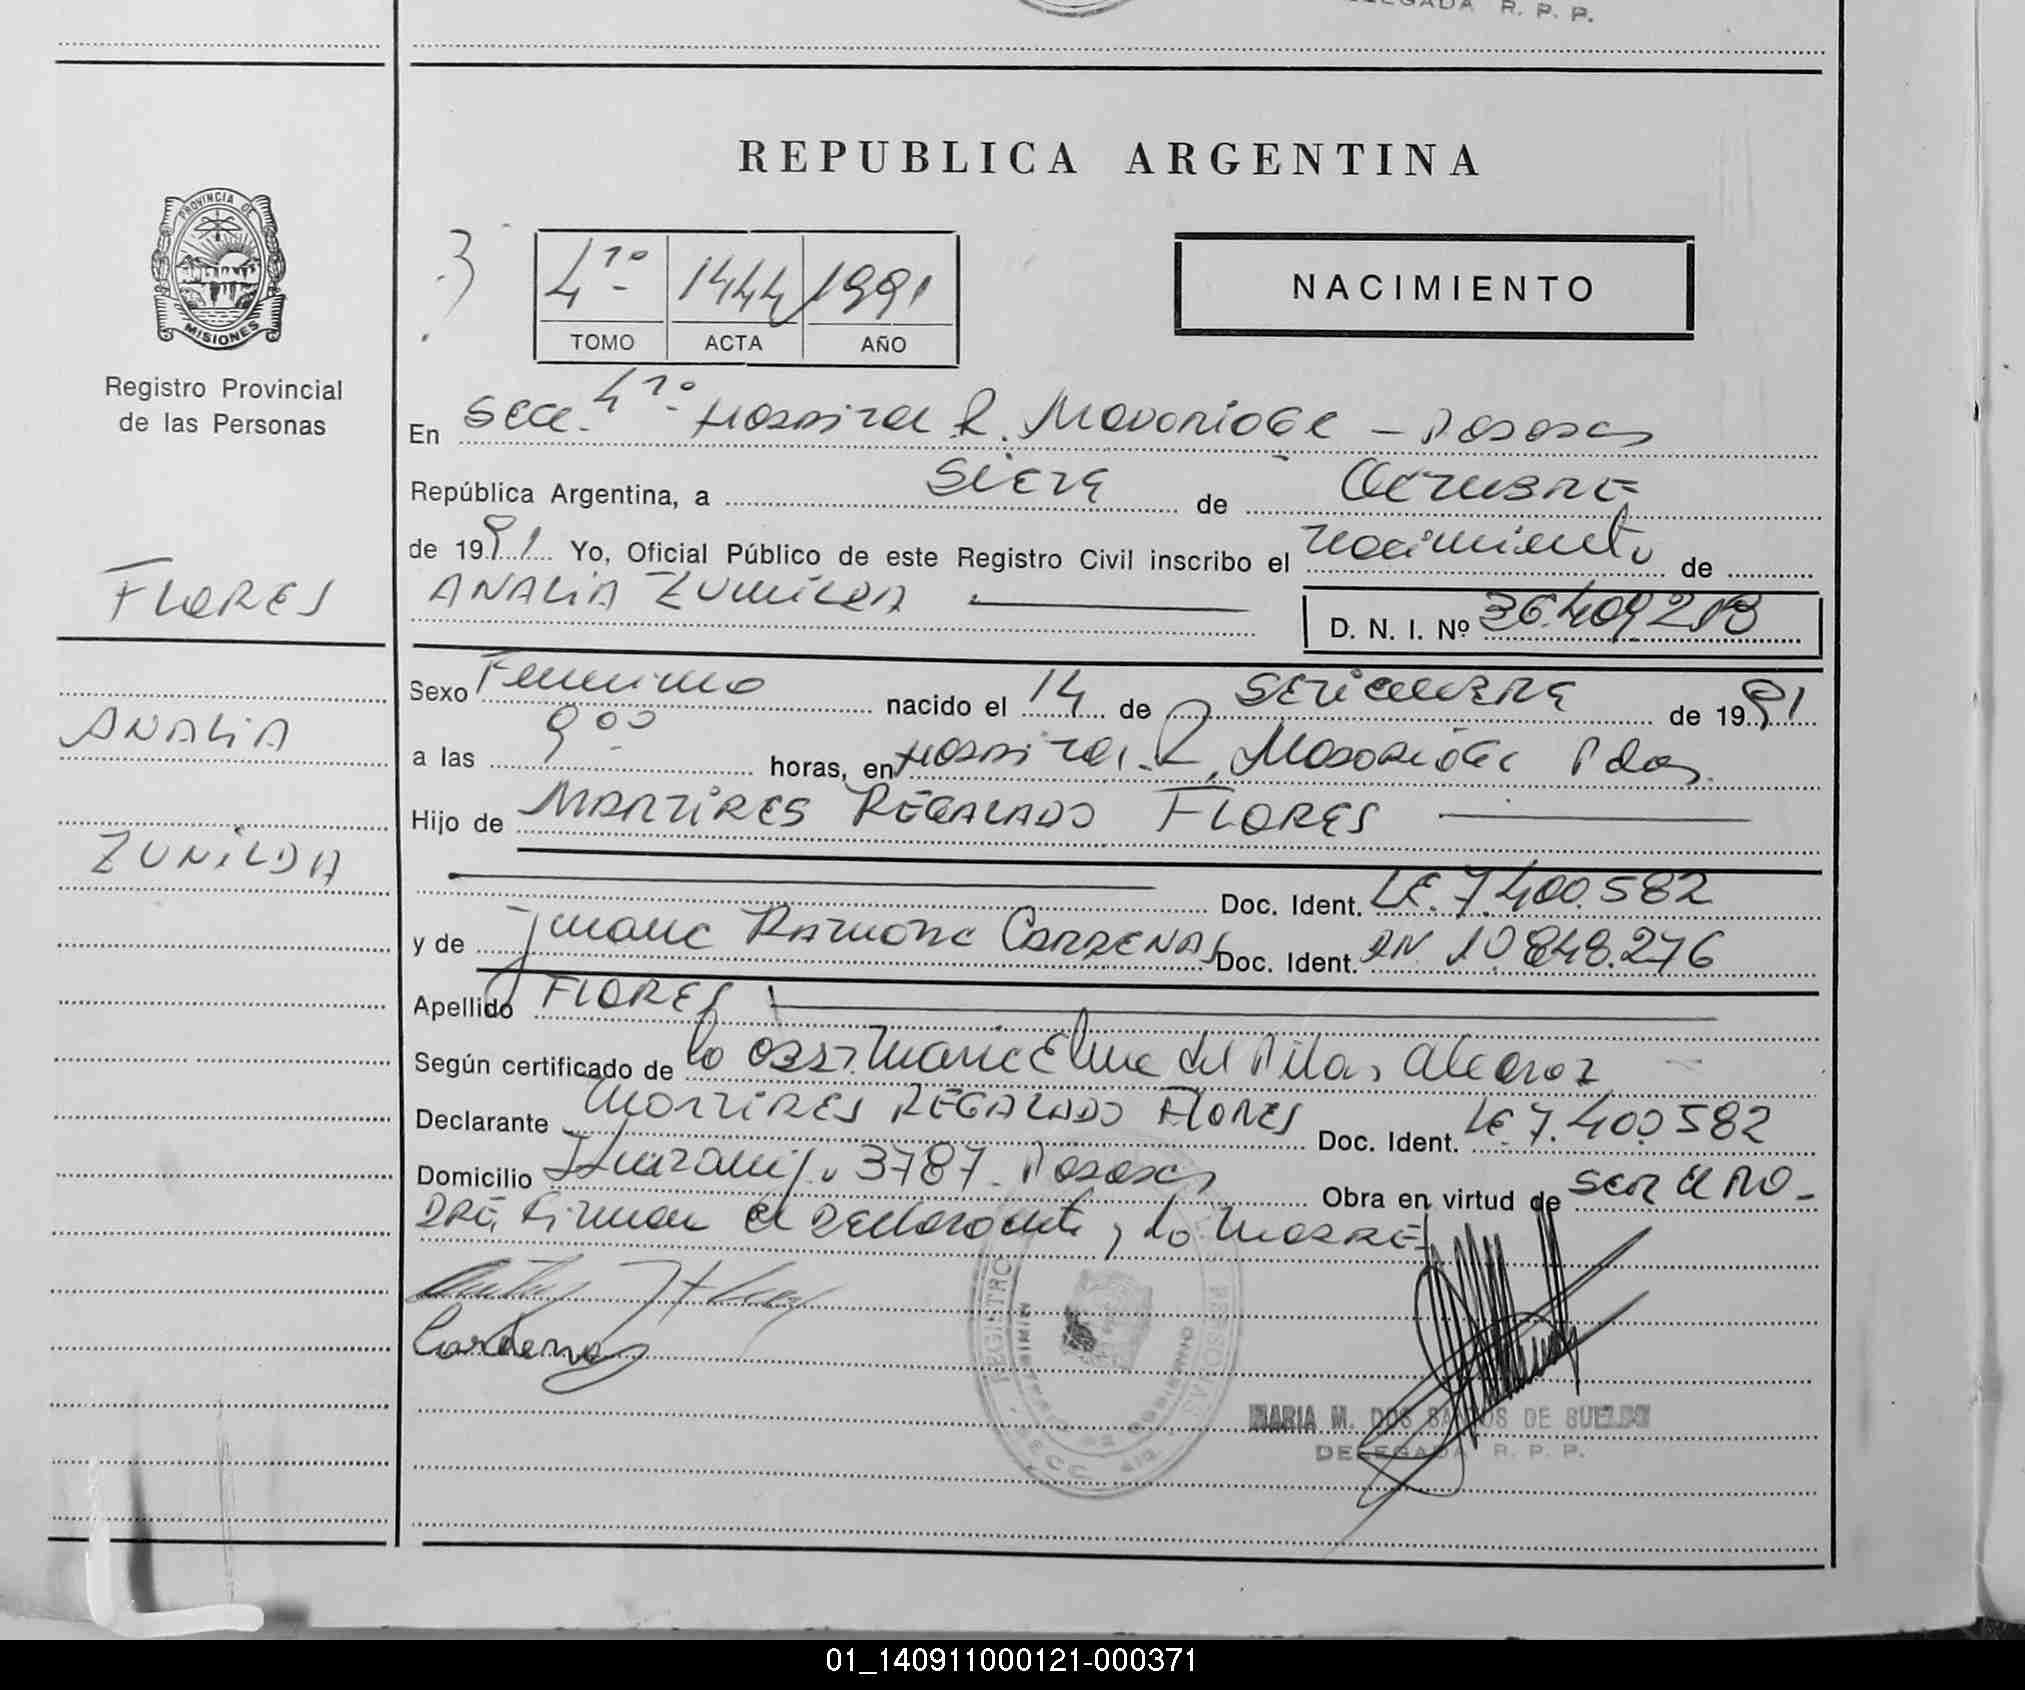 DELEGADA R. P. P.
REPUBLICA ARGENTINA
PROVINCIA DE
MISIONES
Registro Provincial
de las Personas
3
4ta 1444 1991
TOMO ACTA AÑO
NACIMIENTO
En Secc. 4ta Hospital R. Madariaga - Posadas
República Argentina, a Siete de Octubre
de 1991 Yo, Oficial Público de este Registro Civil inscribo el nacimiento de
ANALIA ZUNILDA
D. N. I. Nº 36.409.213
FLORES
ANALIA
ZUNILDA
Sexo Femenino nacido el 14 de Setiembre de 1991
a las 9 00 horas, en Hospital R. Madariaga Pdas.
Hijo de MARTIRES REGALADO FLORES
Doc. Ident. LE. 7.400.582
y de Juana Ramona CARDENAS Doc. Ident. DN. 10.848.276
Apellido FLORES
Según certificado de la Obst. Maria Elena del Pilar Alcaraz
Declarante MARTIRES REGALADO FLORES Doc. Ident. LE. 7.400582
Domicilio 3787 - Posadas Obra en virtud de ser el PA-
DRE, Firman el declarante y la MADRE
Cardenas
REGISTRO PERSONAS
SECC.
MARIA M. DOS SANTOS DE
DELEGADA R. P. P.
01_140911000121-000371